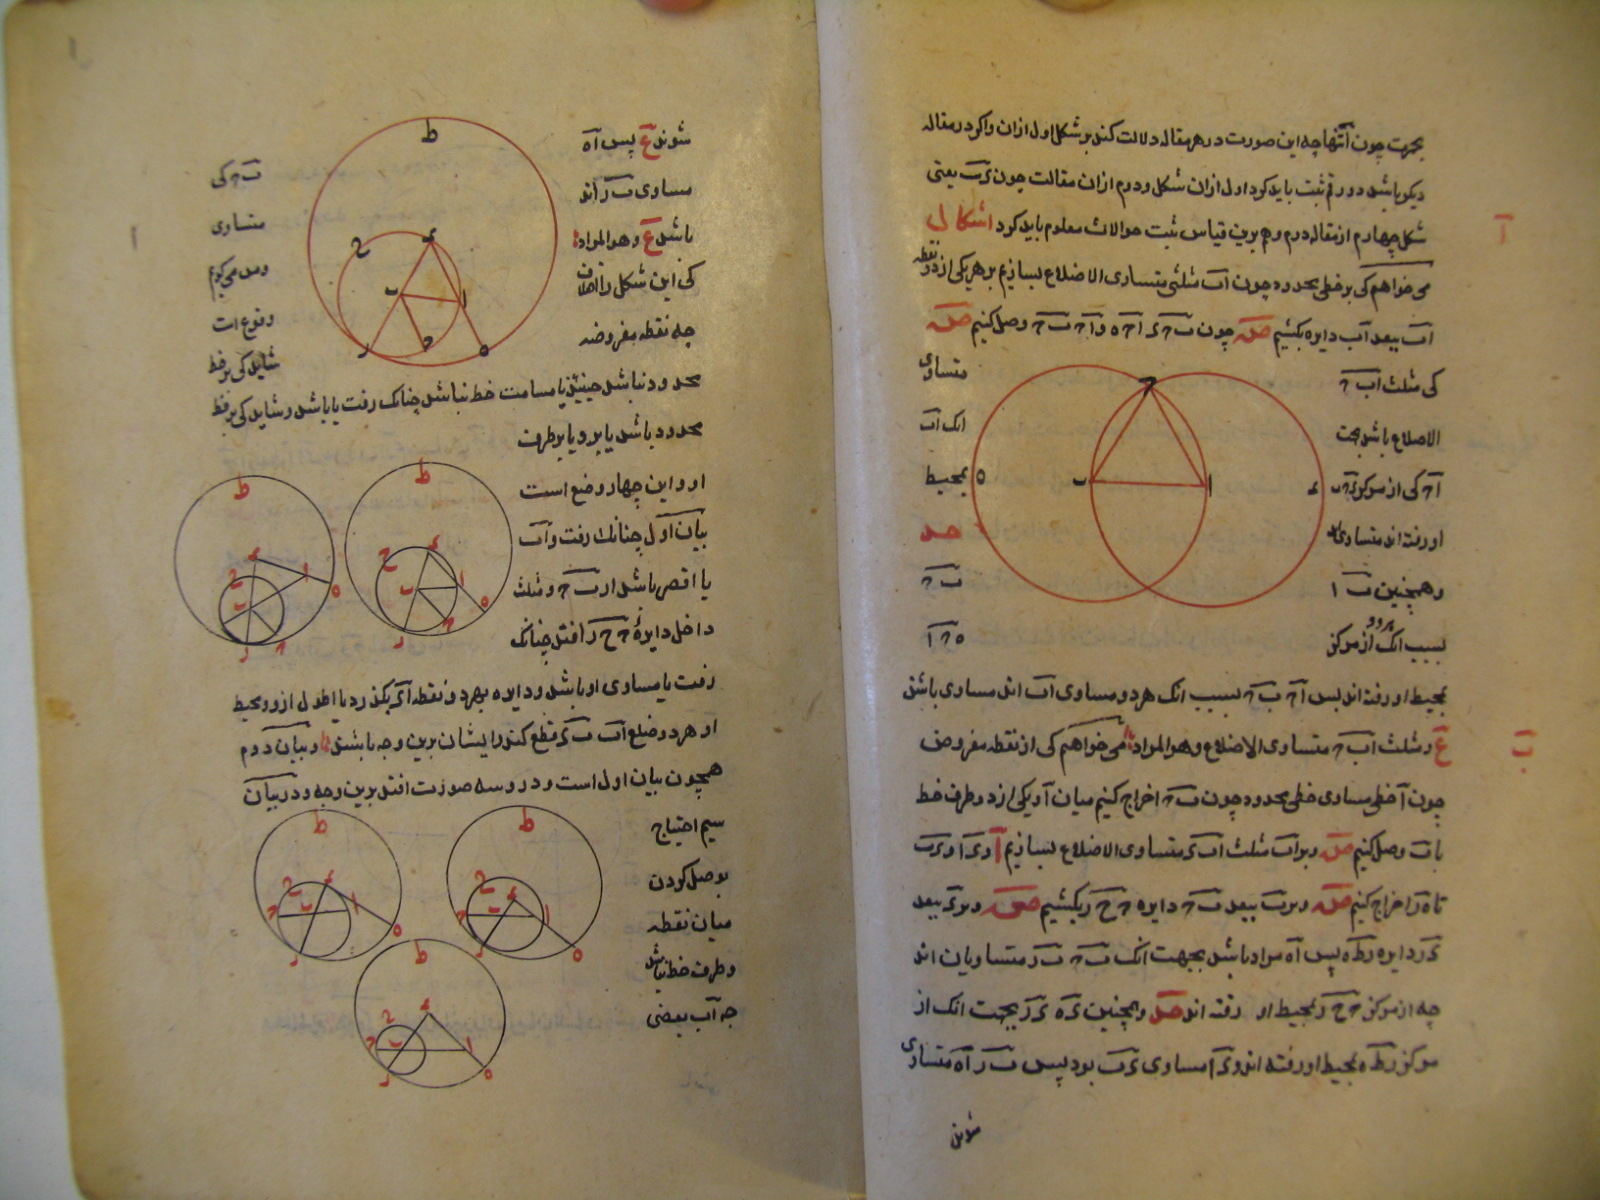 بجهت چون آنها چه این صورت در هر مقاله دلالت کند بر شکل اول ازان واکر در مقاله
دیکر باشد دو رقم ثبت باید کرد اول ازان شکل و دوم ازان مقالت چون د ب یعنی
شکل چهارم از مقاله دوم و هم برین قیاس ثبت حوالات معلوم باید کرد اشکال
ا
می خواهم کی بر خطی محدود چون اب مثلثی متساوی الاضلاع بسازیم بر هر یکی از دو نقطه
اب ببعد اب دایره بکشیم چون ب ح د ا ح ه و ا ح ب ح وصل کنیم
کی مثلث اب ح متساوی
الاضلاع باشد بجهت انک اب
ا ح کی از مرکز بمحیط
او رفته اند متساوی اند حد
و همچنین ب ا ب ح
بسبب انک هر دو از مرکز ا ح ه
بمحیط او رفته اند پس ا ح ب ح بسبب انک هر دو مساوی اب اند مساوی باشند
ع و مثلث اب ح متساوی الاضلاع وهو المراد می خواهم کی از نقطه مفروض
ب
چون ا خطی مساوی خطی محدود چون ب ح اخراج کنیم میان ا و یکی از دو طرف خط
باب وصل کنیم و بر اب مثلث اب د متساوی الاضلاع بسازیم و د ا و د ب
تا ه ر اخراج کنیم و بر ب ببعد ب ح دایره ح ح ر بکشیم و بر د ببعد
د ر دایره ر ط ه پس ا ه مراد باشد بجهت انک ب ح ب ر متساویان اند
چه از مرکز ح ح ر بمحیط او رفته اند حد و همچنین د ه د ر بجهت انک از
مرکز ر ط ه بمحیط او رفته اند و د ا مساوی د ب بود پس ب ر ا ه متساوی
شوند
شوند ع پس ا ه ب ح کی
مساوی ب ر اند متساوی
باشد ع وهو المراد و می کویم
کی این شکل را اختلاف وقوع است
چه نقطه مفروضه شاید کی بر خط
محدود نباشد حینئذ یا مسامت خط نباشد چنانک رفت یا باشد و شاید کی بر خط
محدود باشد یا برو یا بر طرف
او و این چهار وضع است
بیان اول چنانک رفت و اب
یا اقصر باشد از ب ح و مثلث
داخل دایره ح ح ر افتد چنانک
رفت یا مساوی او باشد و دایره بهر دو نقطه ا د بکذرد یا اطول ازو و محیط
او هر دو ضلع اب ب د قطع کند ایشان برین وجه باشند و بیان دوم
همچون بیان اول است و درو سه صورت افتد برین وجه و در بیان
سیم احتیاج
بوصل کردن
میان نقطه
و طرف خط نباشد
چه اب بعضی